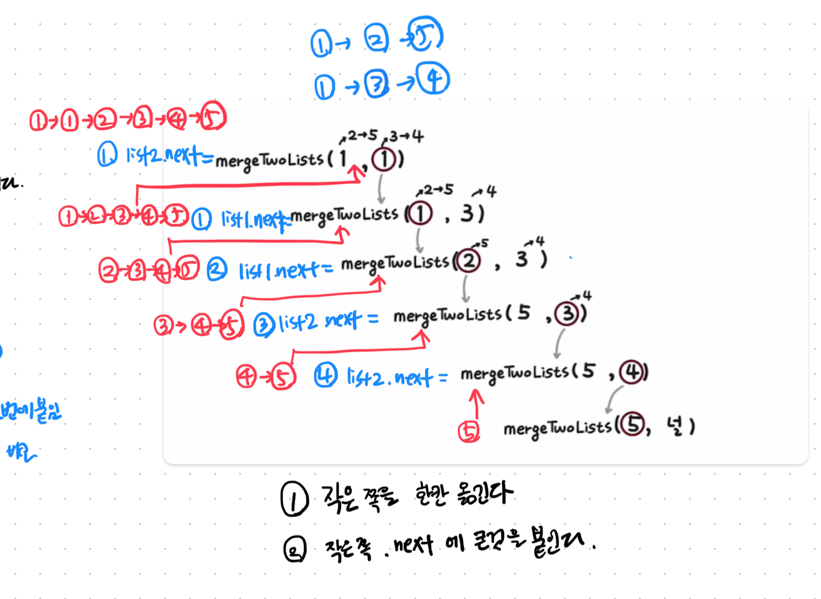 ①→ ②→⑤
①→③→④
①→①→②→③→④→⑤
2→5 3→4
① list2.next= mergeTwoLists(1, ①)
다.
2→5 →4
①→②→③→④→⑤ ① list1.next= mergeTwoLists(①, 3)
→5 →4
②→③→④→⑤ ② list1.next= mergeTwoLists(②, 3)
→4
③→④→⑤ ③ list2.next = mergeTwoLists(5, ③)
④→⑤ ④ list2.next = mergeTwoLists(5, ④)
번에붙임
⑤ mergeTwoLists(⑤, 널)
① 작은 쪽을 한칸 옮긴다
② 작은쪽 .next 에 큰것을 붙인다.